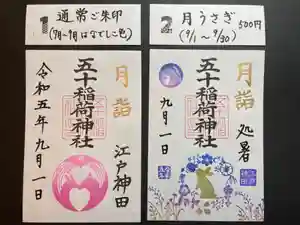 1 通常ご朱印
(7月〜9月はなでしこ色)
月詣
五十稲荷神社
江戸神田
令和五年九月一日
2 月うさぎ 500円
(9/1〜9/30)
月詣
五十稲荷神社
処暑
九月一日